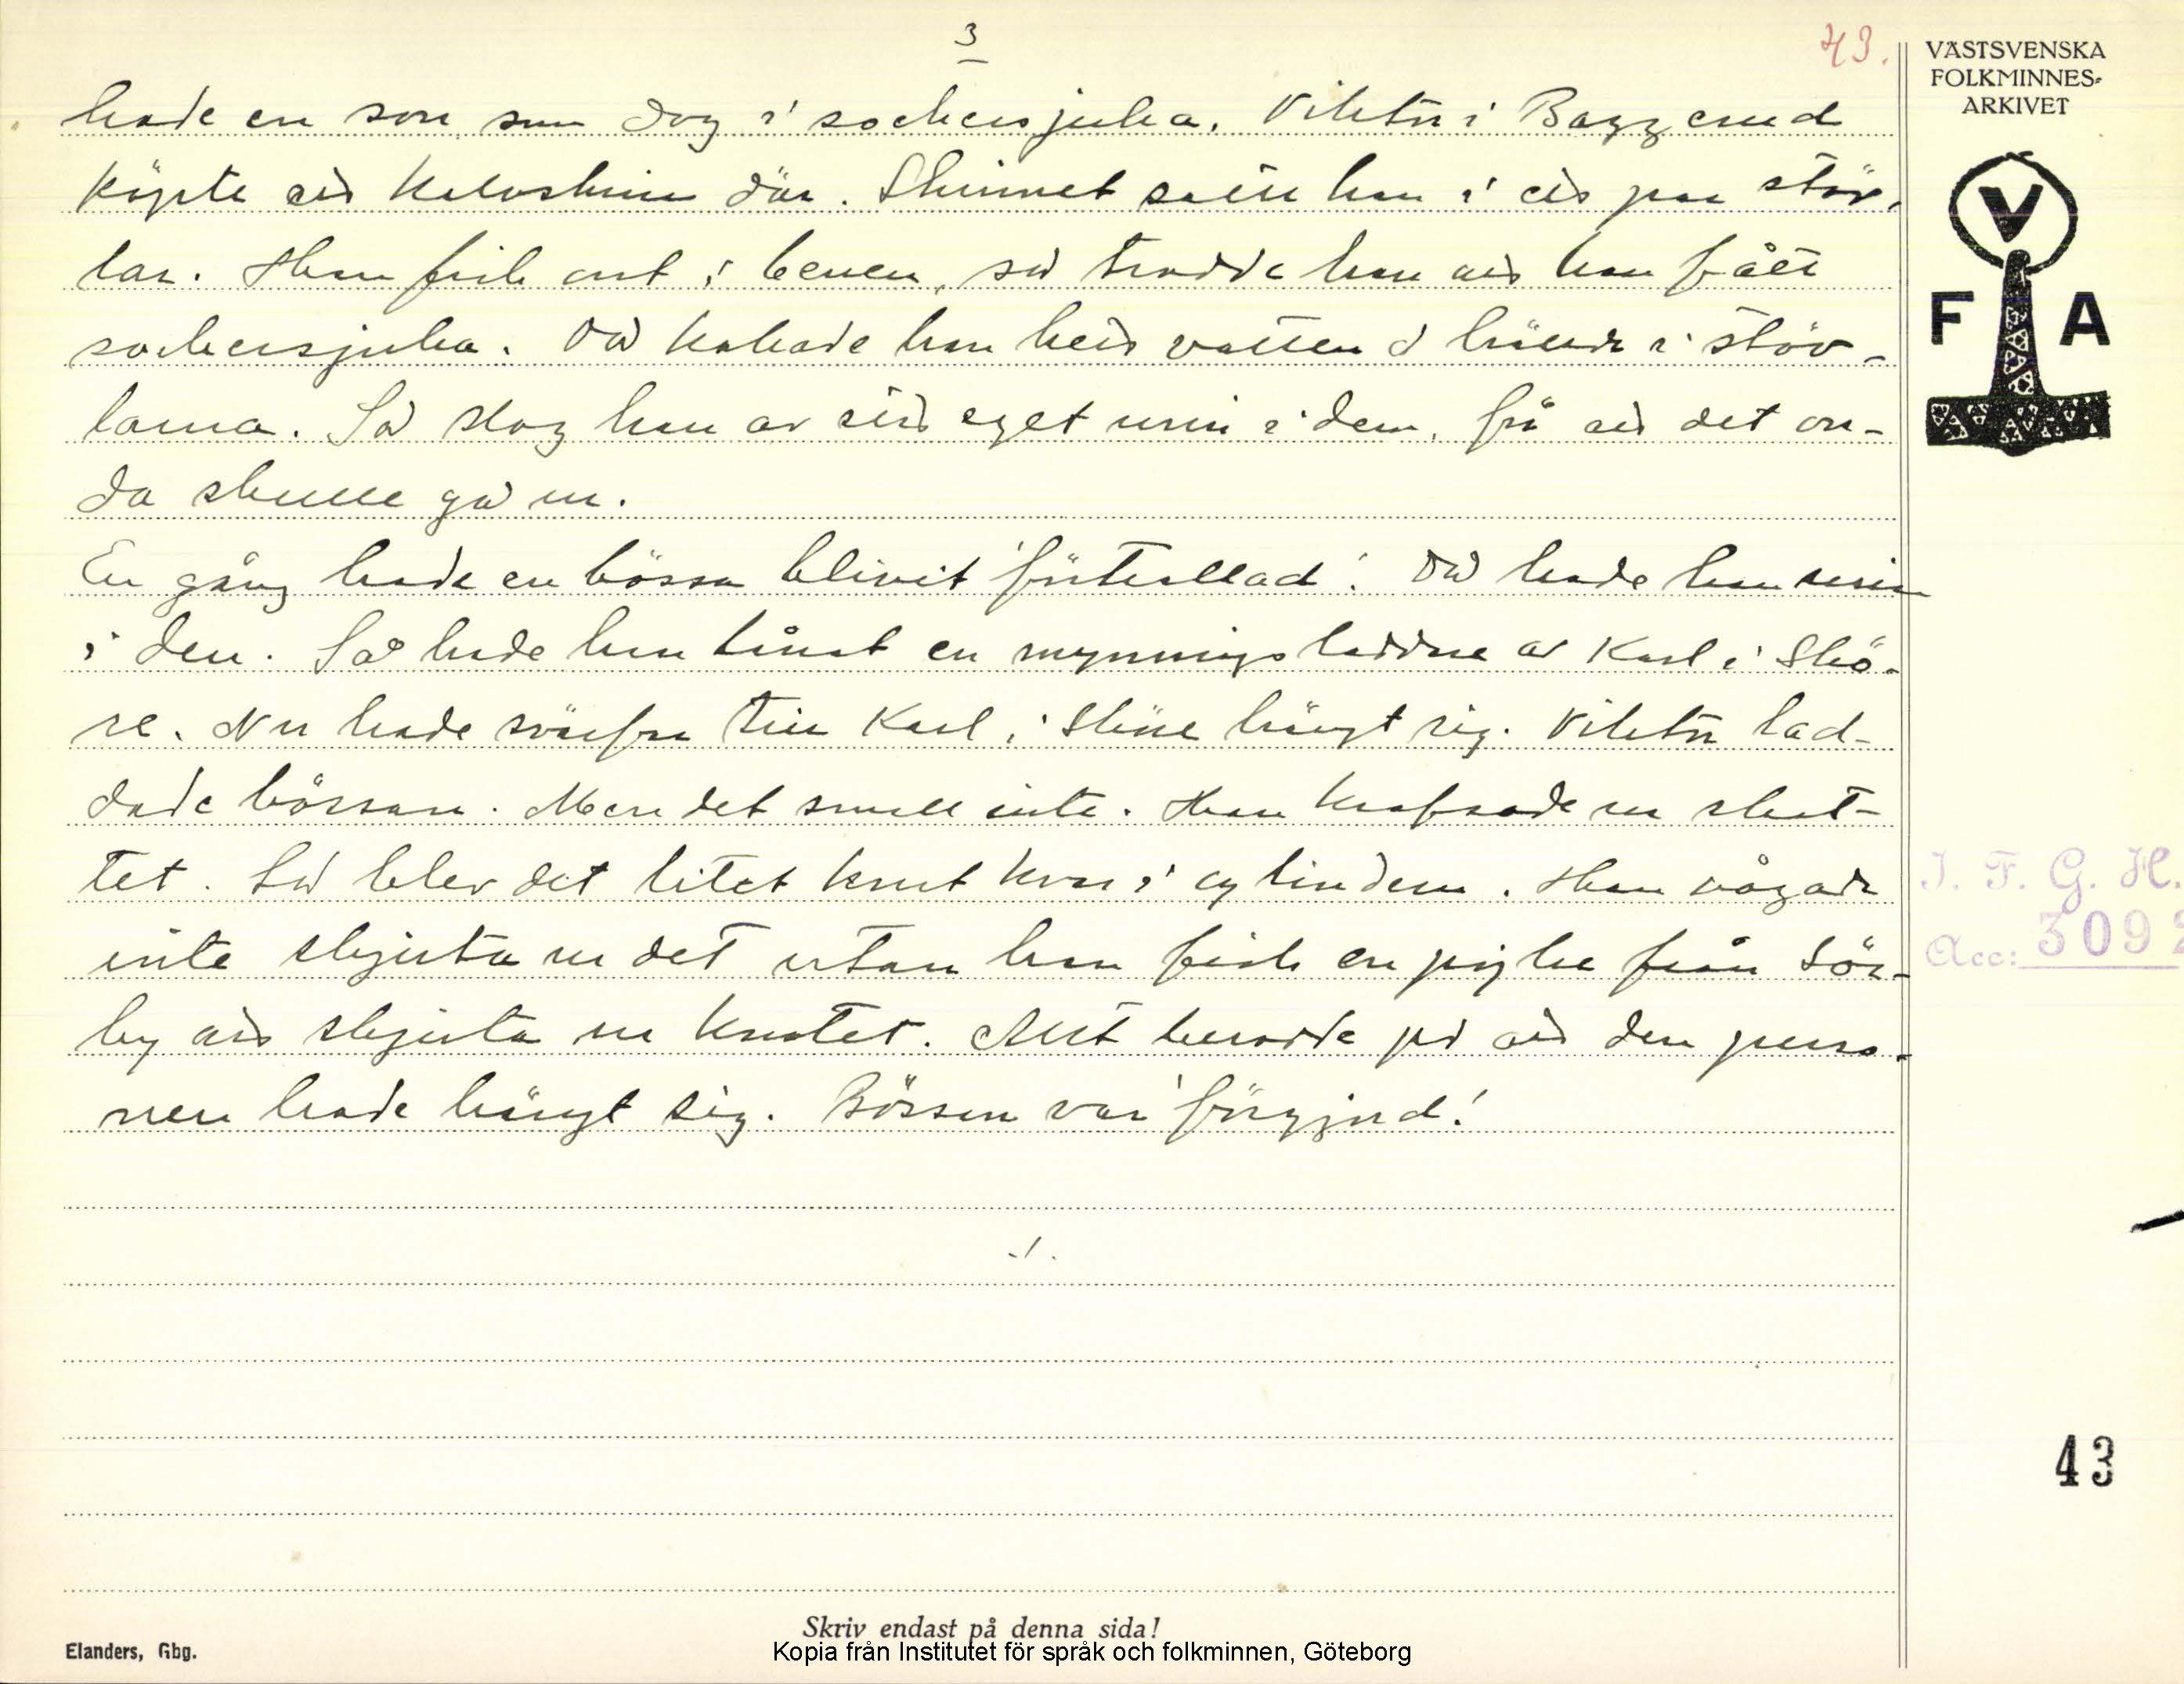 3
43.
VÄSTSVENSKA
FOLKMINNES-
ARKIVET
hade en son som dog i sockersjuka. Viktor i Baggerud
köpte ett kalvskinn där. Skinnet satte han i ett par stöv-
lar. Han fick ont i benen, så trodde han att han fått
sockersjuka. Då kokade han hett vatten å hällde i stöv-
larna. Så slog han av sitt eget urin i dem, för att det on-
da skulle gå ur.
En gång hade en bössa blivit 'förtrollad'. Då hade han urin
i den. Så hade han lånat en mynningsladdare av Karl i Skö-
re. Nu hade svärfar till Karl i Sköre hängt sig. Viktor lad-
dade bössan. Men det small inte. Han krafsade ur skot-
tet. Så blev det litet krut kvar i cylindern. Han vågade
inte skjuta ur det utan han fick en pojke från Sör-
by att skjuta ur krutet. Allt berodde på att den perso-
nen hade hängt sig. Bössan var 'förgjord'!
./.
V
F A
I. F. G. H.
Acc: 3092
43
Skriv endast på denna sida!
Elanders, Gbg.
Kopia från Institutet för språk och folkminnen, Göteborg